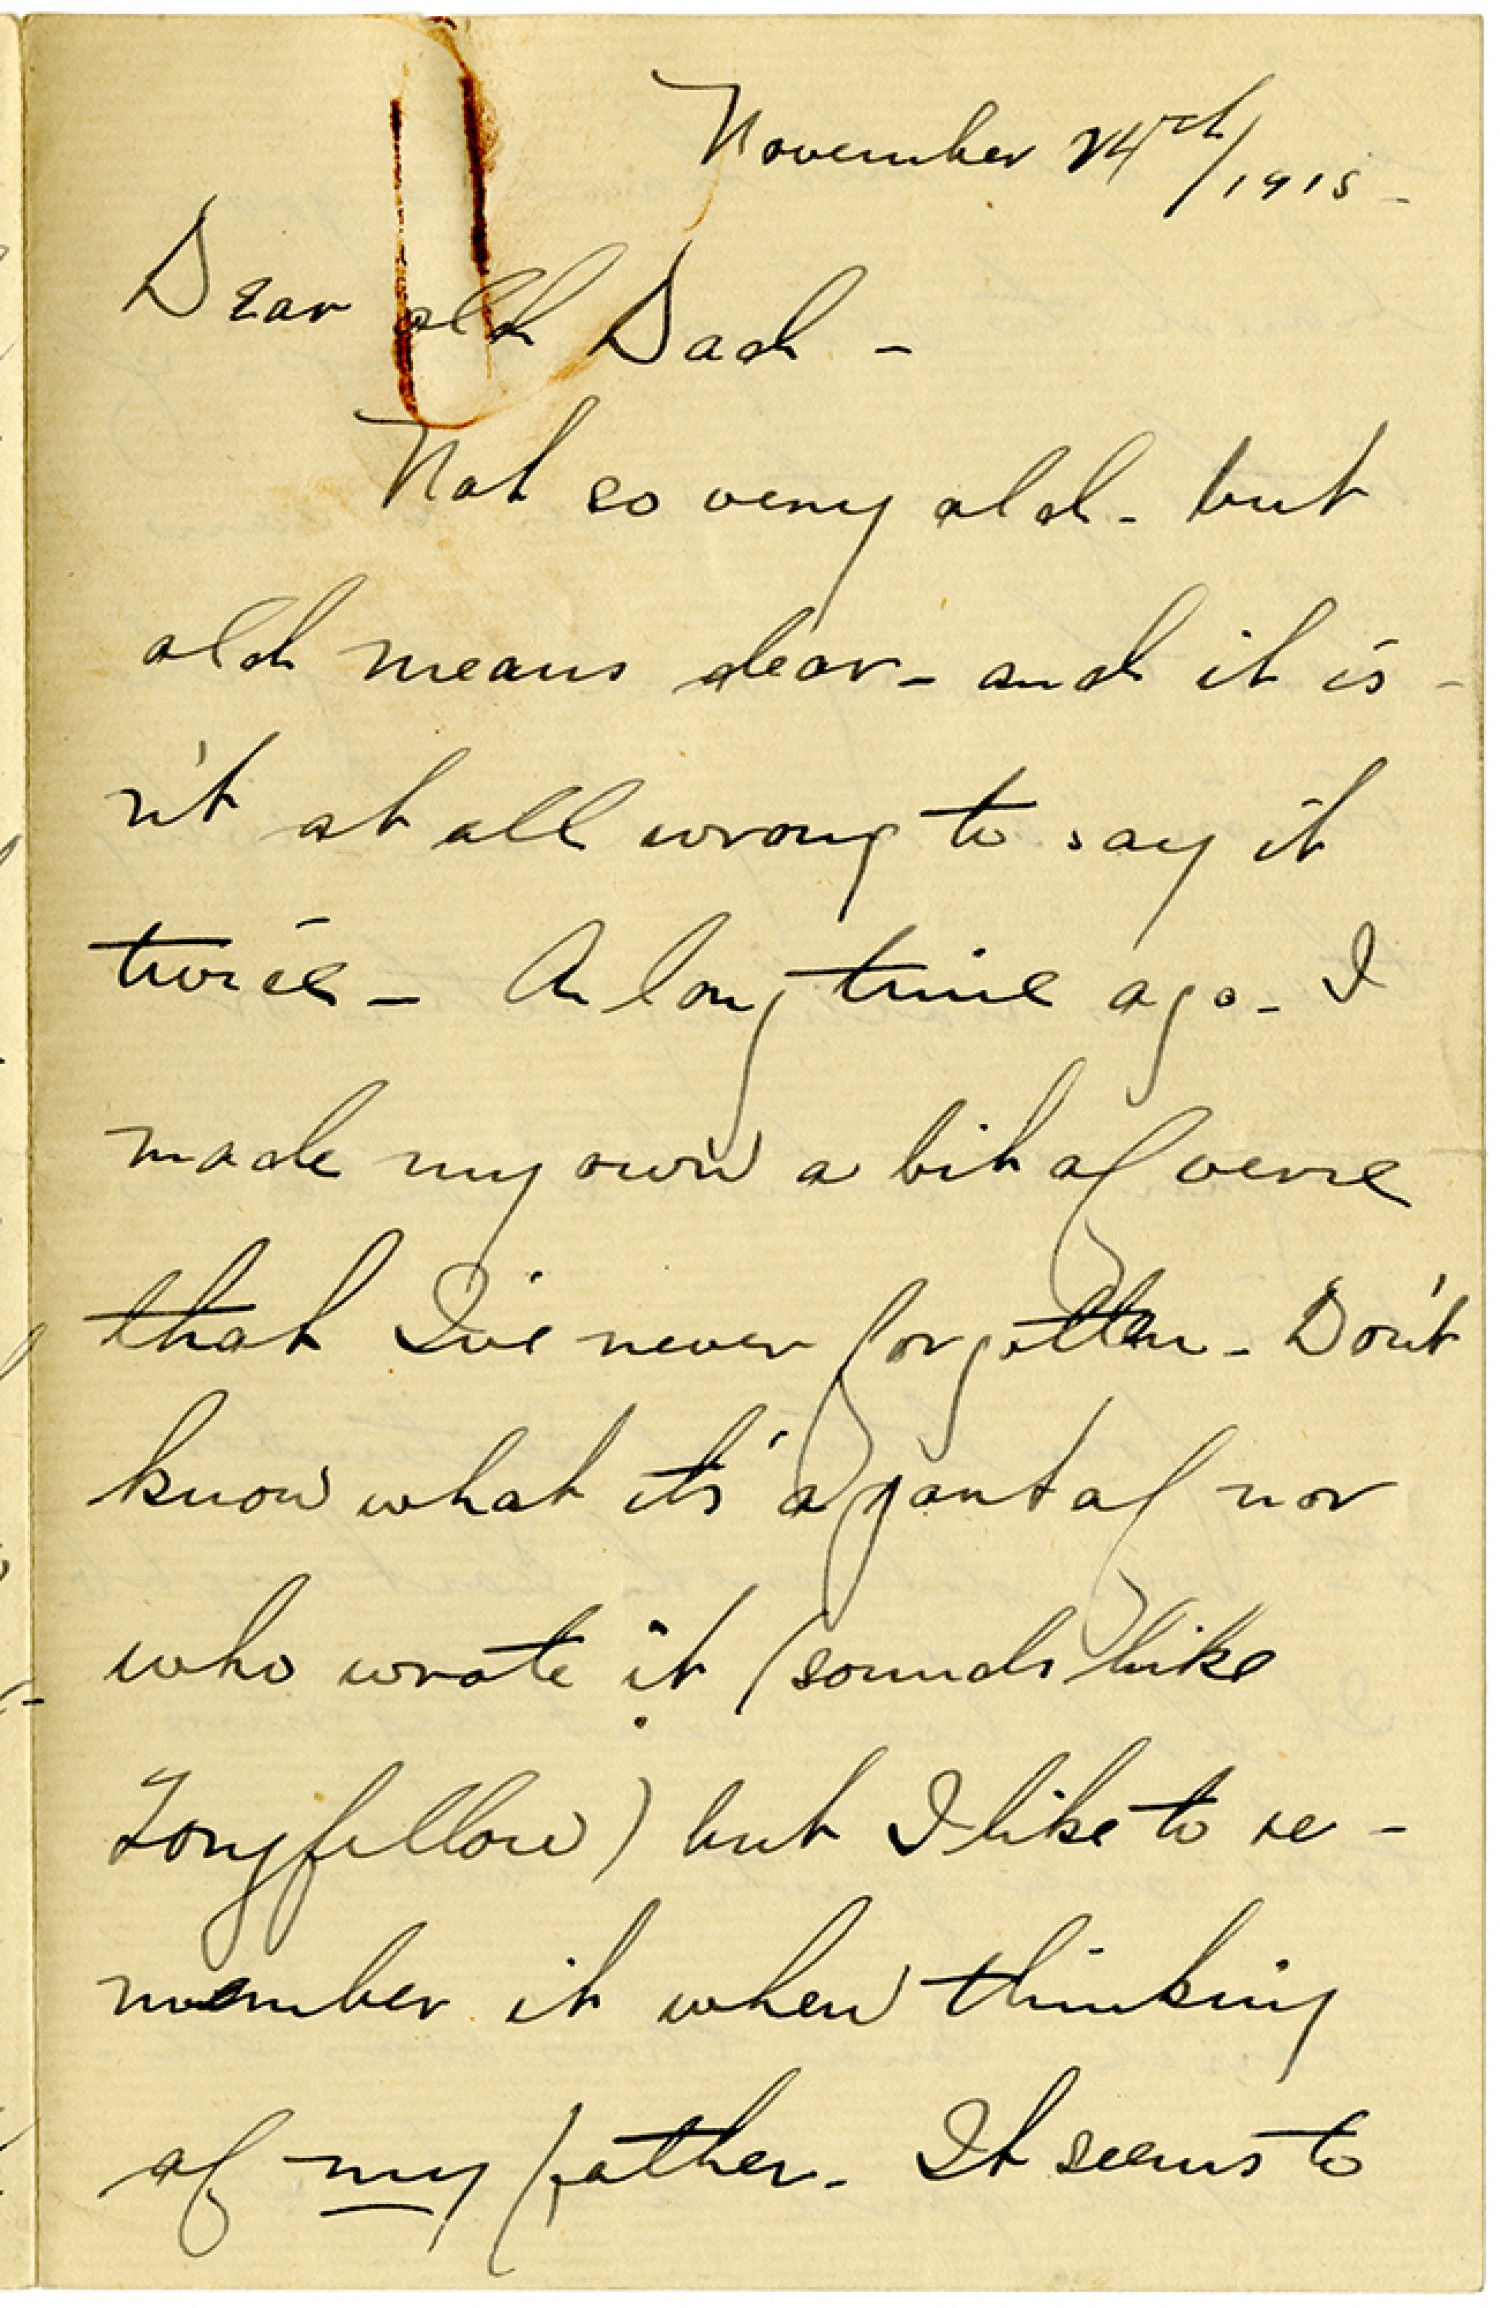 November 24th/1915-
Dear old Dad -
Not so very old - but
old means dear - and it is -
n't at all wrong to say it
twice - A long time ago - I
made my own a bit of verse
that I've never forgotten - Don't
know what it's a part of nor
who wrote it (sounds like
Longfellow) but I like to re -
member it when thinking
of my father - It seems to